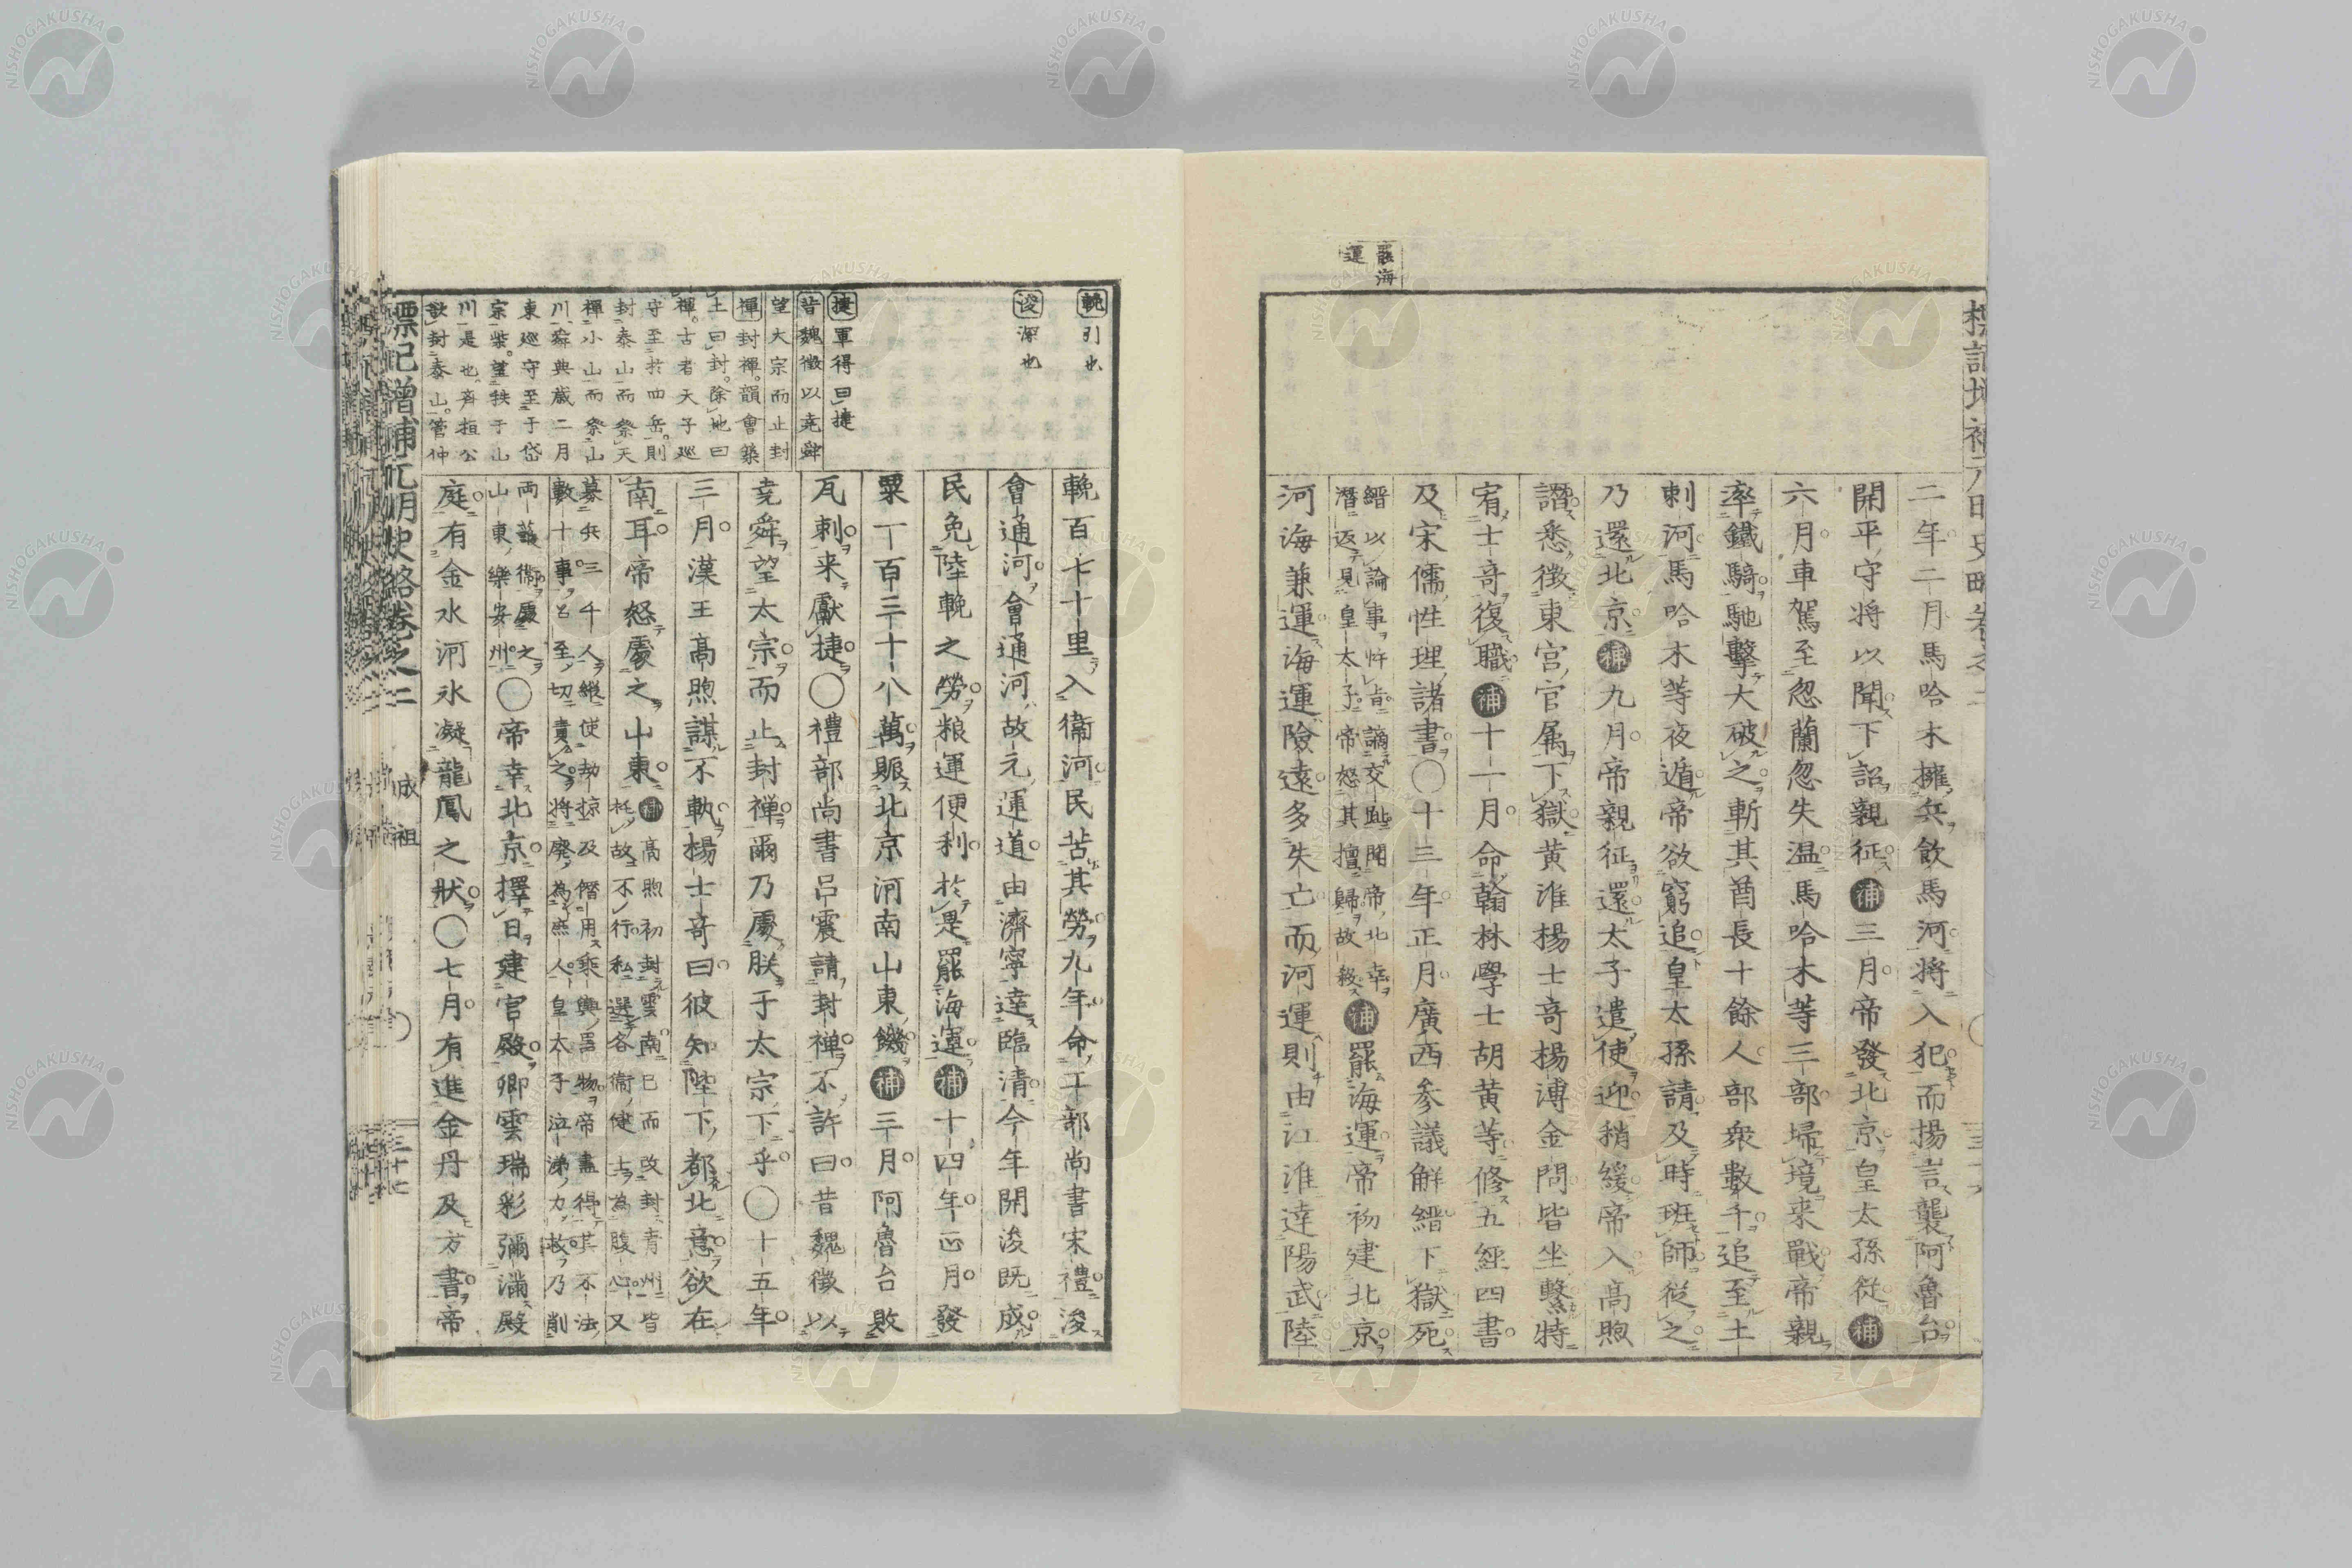 罷海
運
二年二月馬哈木擁兵飲馬河將入犯而揚言襲阿魯台
開平守將以聞下詔親征補三月帝發北京皇太孫從補
六月車駕至忽蘭忽失温馬哈木等三部掃境来戰帝親
率鐵騎馳擊大破之斬其酋長十餘人部衆數千追至土
剌河馬哈木等夜遁帝欲窮追皇太孫請及時班師從之
乃還北京補九月帝親征還太子遣使迎稍緩帝入高煦
譖悉徴東宮官属下獄黄淮楊士竒楊溥金問皆坐繫特
宥士竒復職補十一月命翰林學士胡黄等修五經四書
及宋儒性理諸書○十三年正月廣西参議解縉下獄死
縉以論事忤旨謫交趾聞帝北幸
濳返見皇太子帝怒其擅歸故殺
補罷海運帝初建北京
河海兼運海運險遠多失亡而河運則由江淮逹陽武陸
輓引也
浚深也
捷軍得曰捷
昔魏徴以尭舜
望大宗而止封
禪封禪。韻會築
土曰封。除地曰
禪。古者天子廵
守至於四岳。則
封泰山而祭天
禪小山而祭山
川。舜典歳二月
東廵守至于岱
宗柴。望秩于山
川是也。齊桓公
欲封泰山。管仲
輓百七十里入衞河民苦其勞九年命工部尚書宋禮浚
會通河會通河故元運道由濟寧逹臨清今年開浚既成
民免陸輓之勞粮運便利於是罷海運補十四年正月發
粟一百三十八萬賑北京河南山東饑補三月阿魯台敗
瓦剌来獻捷○禮部尚書呂震請封禅不許曰昔魏徴以
尭舜望太宗而止封禅爾乃處朕于太宗下乎○十五年
三月漢王高煦謀不軌楊士竒曰彼知陛下都北意欲在
南耳帝怒處之山東補
高煦初封雲南已而改封青州皆
托故不行私選各衞健士為腹心又
募兵三千人縱使劫掠及僭用乘輿噐物帝盡得其不法
數十事召至切責之將廢為庶人皇太子泣涕力救乃削
両護衞處之
山東樂安州
○帝幸北京擇日建官殿卿雲瑞彩彌滿殿
庭有金水河氷凝龍鳳之狀○七月有進金丹及方書帝
標記增補元明史略卷之二 成祖 三十七
NISHOGAKUSHA